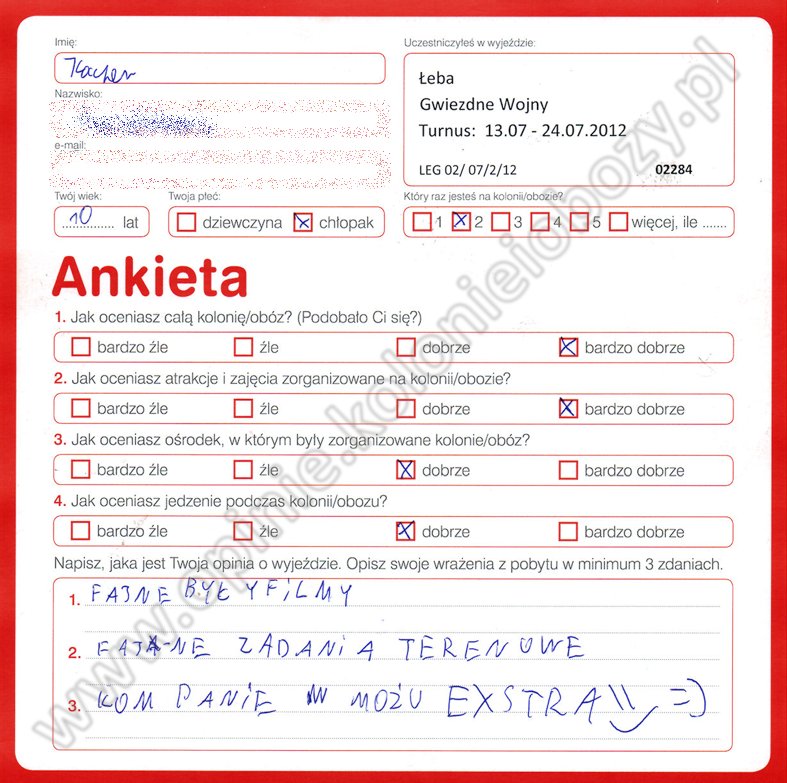 Imię:
Kacper
Uczestniczyłeś w wyjeździe:
Łeba
Gwiezdne Wojny
Turnus: 13.07 - 24.07.2012
LEG 02/ 07/2/12 02284
Nazwisko:
e-mail:
Twój wiek:
10 lat
Twoja płeć:
dziewczyna chłopak
Który raz jesteś na kolonii/obozie?
1 2 3 4 5 więcej, ile .......
Ankieta
1. Jak oceniasz całą kolonię/obóz? (Podobało Ci się?)
bardzo źle źle dobrze bardzo dobrze
2. Jak oceniasz atrakcje i zajęcia zorganizowane na kolonii/obozie?
bardzo źle źle dobrze bardzo dobrze
3. Jak oceniasz ośrodek, w którym były zorganizowane kolonie/obóz?
bardzo źle źle dobrze bardzo dobrze
4. Jak oceniasz jedzenie podczas kolonii/obozu?
bardzo źle źle dobrze bardzo dobrze
Napisz, jaka jest Twoja opinia o wyjeździe. Opisz swoje wrażenia z pobytu w minimum 3 zdaniach.
1. FAJNE BYŁY FILMY
2. FAJNE ZADANIA TERENOWE
3. KOMPANIE W MOŻU EXSTRA!! =)
www.opinie.kolonieiobozy.pl